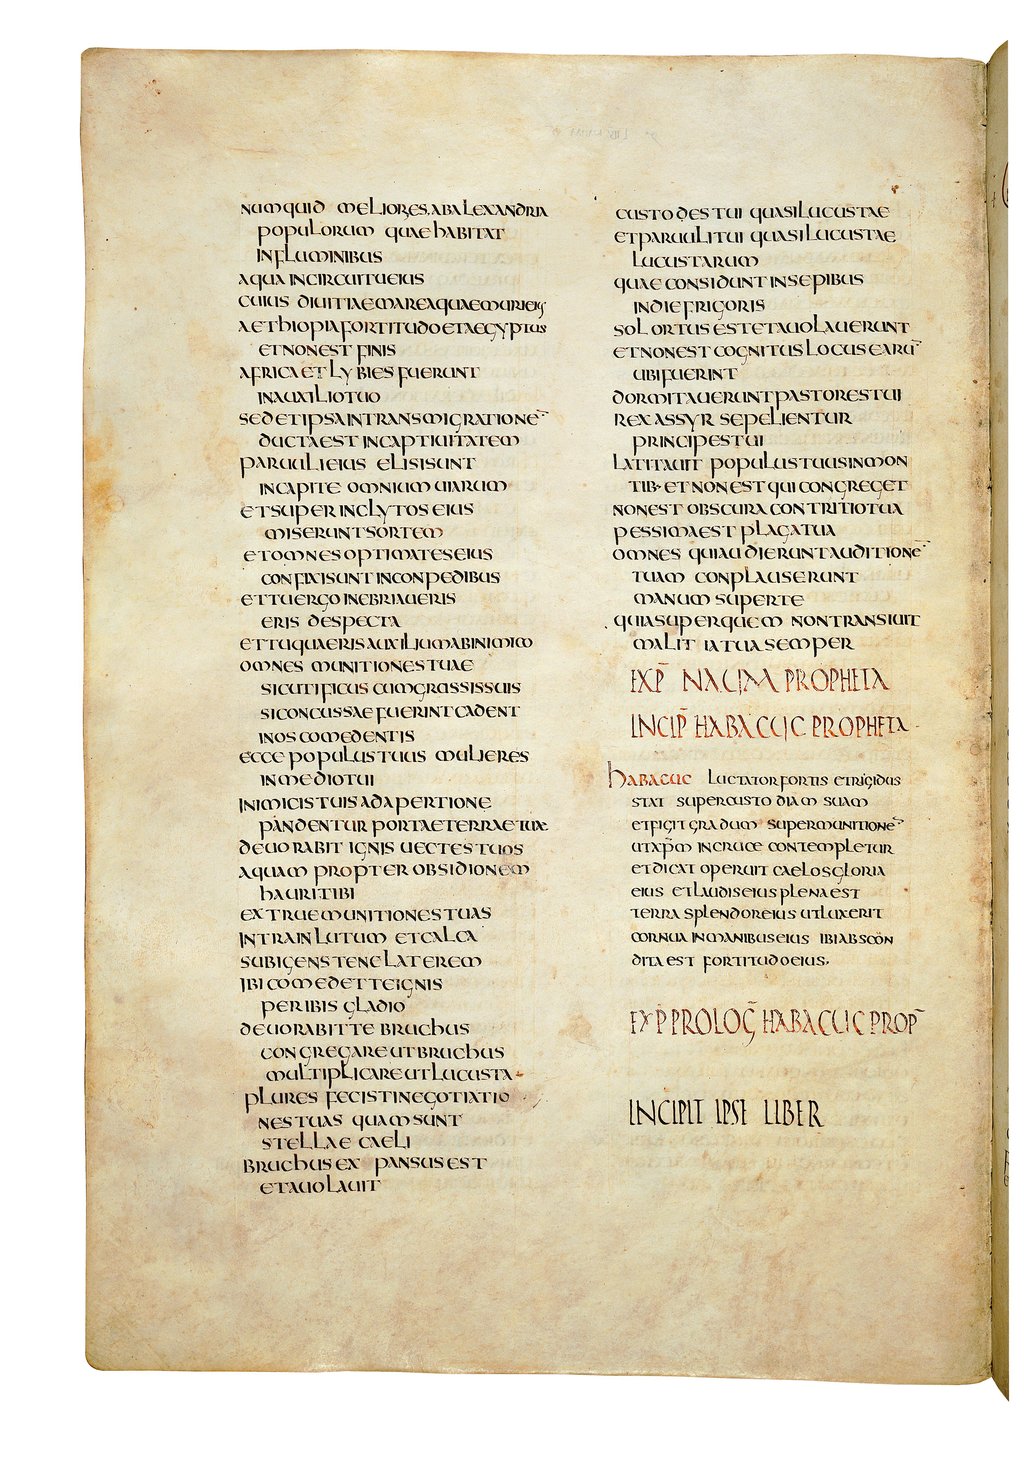 NUMQUID MELIORES·ABALEXANDRIA
POPULORUM QUAEHABITAT
INFLUMINIBUS
AQUAINCIRCUITUEIUS
CUIUS DIUITIAEMAREAQUAEMURIEIUS
AETHIOPIAFORTITUDOETAEGYPTUS
ETNONEST FINIS
AFRICAETLYBIESFUERUNT
INAUXILIOTUO
SEDETIPSAINTRANSMIGRATIONĒ
DUCTAESTINCAPTIUITATEM
PARUULIEIUS ELISISUNT
INCAPITE OMNIUMUIARUM
ETSUPERINCLYTOSEIUS
MISERUNTSORTEM
ETOMNESOPTIMATESEIUS
CONFIXISUNTINCONPEDIBUS
ETTUERGOINEBRIAUERIS
ERIS DESPECTA
ETTUQUAERISAUXILIUMABINIMICO
OMNES MUNITIONESTUAE
SICUTIFICUSCUMGRASSISSUIS
SICONCUSSAEFUERINTCADENT
INOSCOMEDENTIS
ECCEPOPULUSTUUS MULIERES
INMEDIOTUI
INIMICISTUISADAPERTIONE
PANDENTURPORTAETERRAETUAE
DEUORABIT IGNISUECTESTUOS
AQUAMPROPTEROBSIDIONEM
HAURITIBI
EXTRUEMUNITIONESTUAS
INTRAINLUTUM ETCALCA
SUBIGENSTENELATEREM
IBICOMEDETTEIGNIS
PERIBISGLADIO
DEUORABITTEBRUCHUS
CONGREGAREUTBRUCHUS
MULTIPLICAREUTLUCUSTA
PLURES FECISTINEGOTIATIO
NESTUAS QUAMSUNT
STELLAECAELI
BRUCHUSEX PANSUSEST
ETAUOLAUIT
CUSTODESTUI QUASILUCUSTAE
ETPARUULITUI QUASILUCUSTAE
LUCUSTARUM
QUAECONSIDUNTINSEPIBUS
INDIEFRIGORIS
SOLORTUSESTETAUOLAUERUNT
ETNONESTCOGNITUSLOCUSEARŪ
UBIFUERINT
DORMITAUERUNTPASTORESTUI
REXASSYR SEPELIENTUR
PRINCIPESTUI
LATITAUIT POPULUSTUUSINMON
TIB·ETNONESTQUICONGREGET
NONESTOBSCURACONTRITIOTUA
PESSIMAEST PLAGATUA
OMNES QUIAUDIERUNTAUDITIONĒ
TUAM CONPLAUSERUNT
MANUMSUPERTE
QUIASUPERQUEM NONTRANSIUIT
MALITIATUASEMPER
EXP̄ NAUM PROPHETA
INCIP̄ HABACUC PROPHETA·
HABACUC LUCTATORFORTISETRIGIDUS
STAT SUPERCUSTODIAMSUAM
ETFIGITGRADUM SUPERMUNITIONĒ
UTXP̄MINCRUCECONTEMPLETUR
ETDICATOPERUITCAELOSGLORIA
EIUS ETLAUDISEIUSPLENAEST
TERRASPLENDOREIUSUTLUXERIT
CORNUAINMANIBUSEIUS IBIABSCON
DITAEST FORTITUDOEIUS,
EXP̄ PROLOḠ HABACUC PROP̄
INCIPIT IPSE LIBER